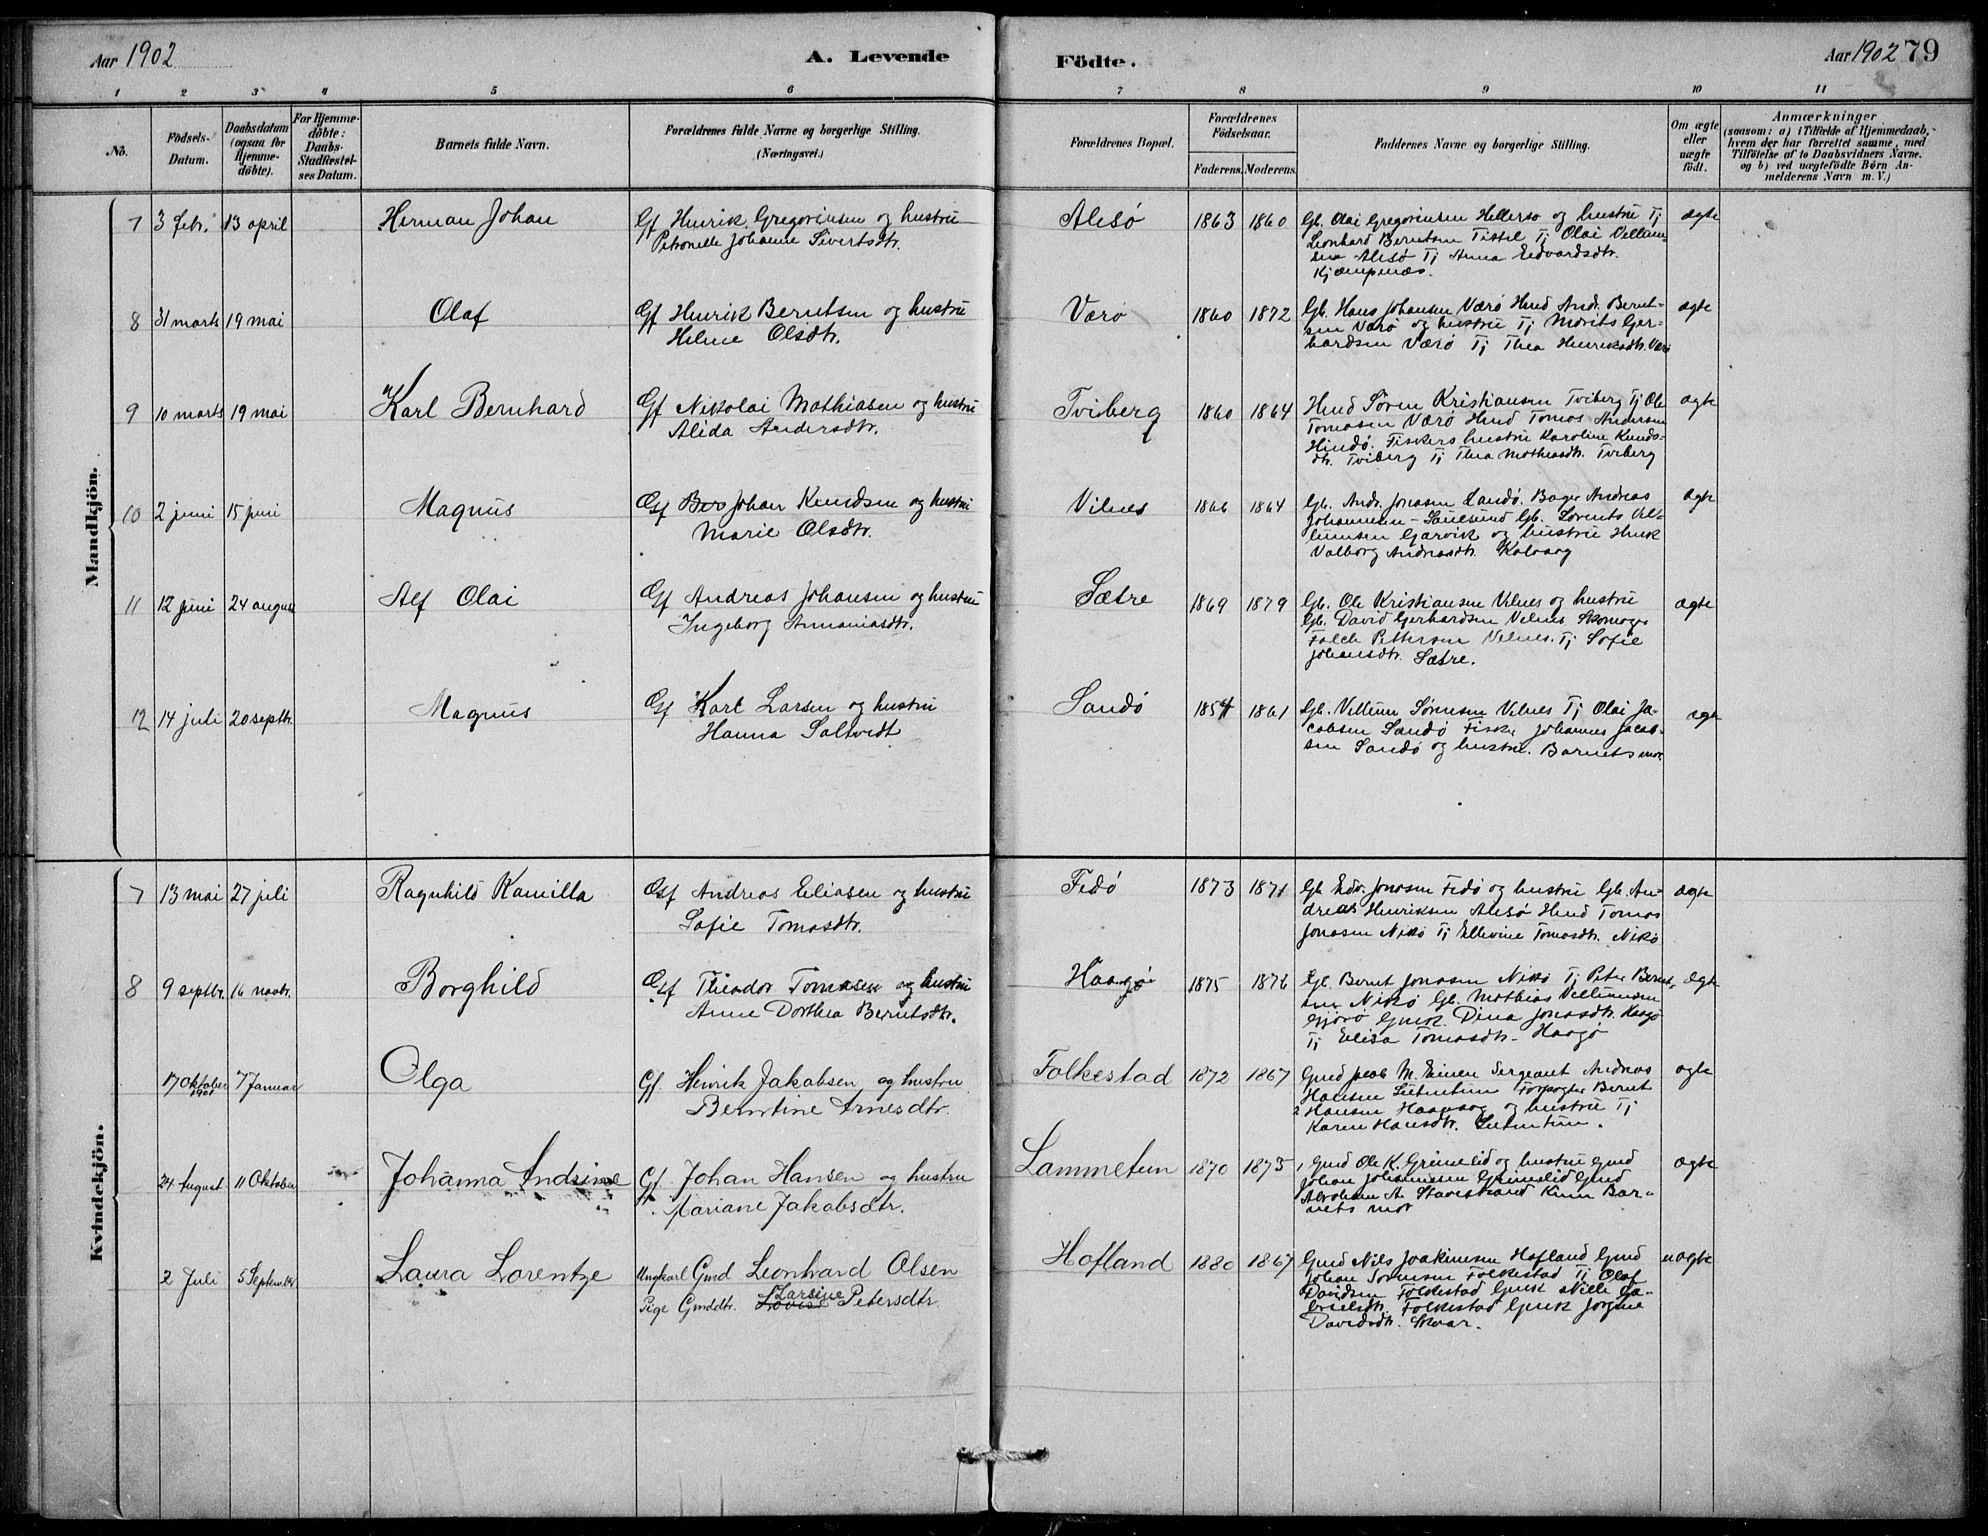 Aar 1902
A. Levende
Födte.
Aar 1902 79
1 2 3 4 5 6 7 8 9 10 11
No.
Födsels-
Datum.
Daabsdatum
(ogsaa for
Hjemme-
döbte).
For Hjemme-
döbte:
Daabs-
Stadfæstel-
ses Datum.
Barnets fulde Navn.
Forældrenes fulde Navne og borgerlige Stilling.
(Næringsvei.)
Forældrenes Bopæl.
Forældrenes
Födselsaar.
Faderens. Moderens.
Faddernes Navne og borgerlige Stilling.
Om ægte
eller
uægte
födt.
Anmærkninger
(saasom: a) i Tilfælde af Hjemmedaab,
hvem der har forrettet samme, med
Tilföielse af to Daabsvidners Navne,
og b) ved uægtefödte Börn An-
melderens Navn m. V.)
Mandkjön.
7 3 febr. 13 april Herman Johan
Gf Henrik Gregoriusen og hustru
Petronelle Johanne Sivertsdtr.
Alesø 1863 1860
Gb. Olai Gregoriusen Hellersø og hustru Tj
Leonhard Berntsen Tistel Tj Olai Vellum-
sen Alesø Tj Anna Edvardsdtr.
Kjempenæs.
ægte
8 31 marts 19 mai Olaf
Gf Henrik Berntsen og hustru
Helene Olsdtr.
Værø 1860 1872
Gb. Hans Johansen Værø Hmd Andr. Bernt-
sen Værø og hustru Tj Morits Ger-
hardsen Værø Tj Thea Henriksdtr. Værø
ægte
9 10 marts 19 mai Karl Bernhard
Gf Nikolai Mathiasen og hustru
Alida Andersdtr.
Tviberg 1860 1864
Hmd Sören Kristiansen Tviberg Tj Ole
Tomasen Værø Hmd Tomas Andersen
Hindø. Fiskers hustru Karoline Knuds-
dtr. Tviberg Tj Thea Mathiasdtr. Tviberg
ægte
10 2 juni 15 juni Magnus
Gf Johan Knudsen og hustru
Marie Olsdtr.
Vilnes 1866 1864
Gb. Andr. Jonasen Sandø. Bager Andreas
Johannesen - Sauesund Gb. Lorents Vel-
lumsen Gjervik og hustru
Valborg Andreasdtr. Kalvaag
ægte
11 12 juni 24 august Alf Olai
Gf Andreas Johansen og hustru
Ingeborg Annaniasdtr.
Sætre 1869 1879
Gb. Ole Kristiansen Vilnes og hustru
Gb. David Gerhardsen Vilnes Skomager
Falch Pettersen Vilnes. Tj Sofie
Johansdtr. Sætre.
ægte
12 14 juli 20 septbr. Magnus
Gf Karl Larsen og hustru
Hanna Saltvedt
Sandø 1854 1861
Gb. Vellum Sörensen Vilnes Tj Olai Ja-
cobsen Sandø Fisker Johannes Jacob-
sen Sandø og hustru. Barnets mor.
ægte
Kvindekjön.
7 13 mai 27 juli Ragnhild Kamilla
Gf Andreas Eliasen og hustru
Sofie Tomasdtr.
Fedø 1873 1871
Gb. Edv. Jonasen Fedø og hustru Gb. An-
dreas Henriksen Alesø Hmd Tomas
Jonasen Nikø Tj Ellevine Tomasdtr. Nikø
ægte
8 9 septbr. 16 novbr. Borghild
Gf Theodor Tomasen og hustru
Anne Dorthea Berntsdtr.
Haagø 1875 1876
Gb. Bernt Jonasen Nikø Tj Peter Bernt-
sen Nikø Gb. Mathias Vellumsen
Gjörø Gmk. Dina Jonasdtr. Haagø
Tj Elisa Tomasdtr. Haagø
ægte
17 Oktober 1901 7 Januar Olga
Gf. Henrik Jakobsen og hustru
Berntine Arnesdtr.
Folkestad 1872 1867
Gmd Jacob M. Einen Sergeant Andreas
Hansen Lutentun Bernt
Hansen og hustru Tj
Karen Hansdtr. Lutentun.
ægte
24 August 11 Oktober Johanna Andsine
Gf. Johan Hansen og hustru
Mariane Jakobsdtr.
Lammetun 1870 1873
Gmd Ole K. Grimelid og hustru Gmd
Johan Johannesen Grimelid Gmd
Abraham A. Stavestrand Kinn Bar-
nets mor
ægte
2 Juli 5 Septemb. Laura Lorentze
Ungkarl Gmd Leonhard Olsen
Pige Gmddtr. Larsine Petersdtr
Hofland 1880 1867
Gmd Nils Joakimsen Hofland Gmd
Johan Sörensen Folkestad Tj Olaf
Davidsen Folkestad Gmk Nille Ga-
brielsdtr. Folkestad Gmk Jörgine
Davidsdtr. Skvar.
uægte